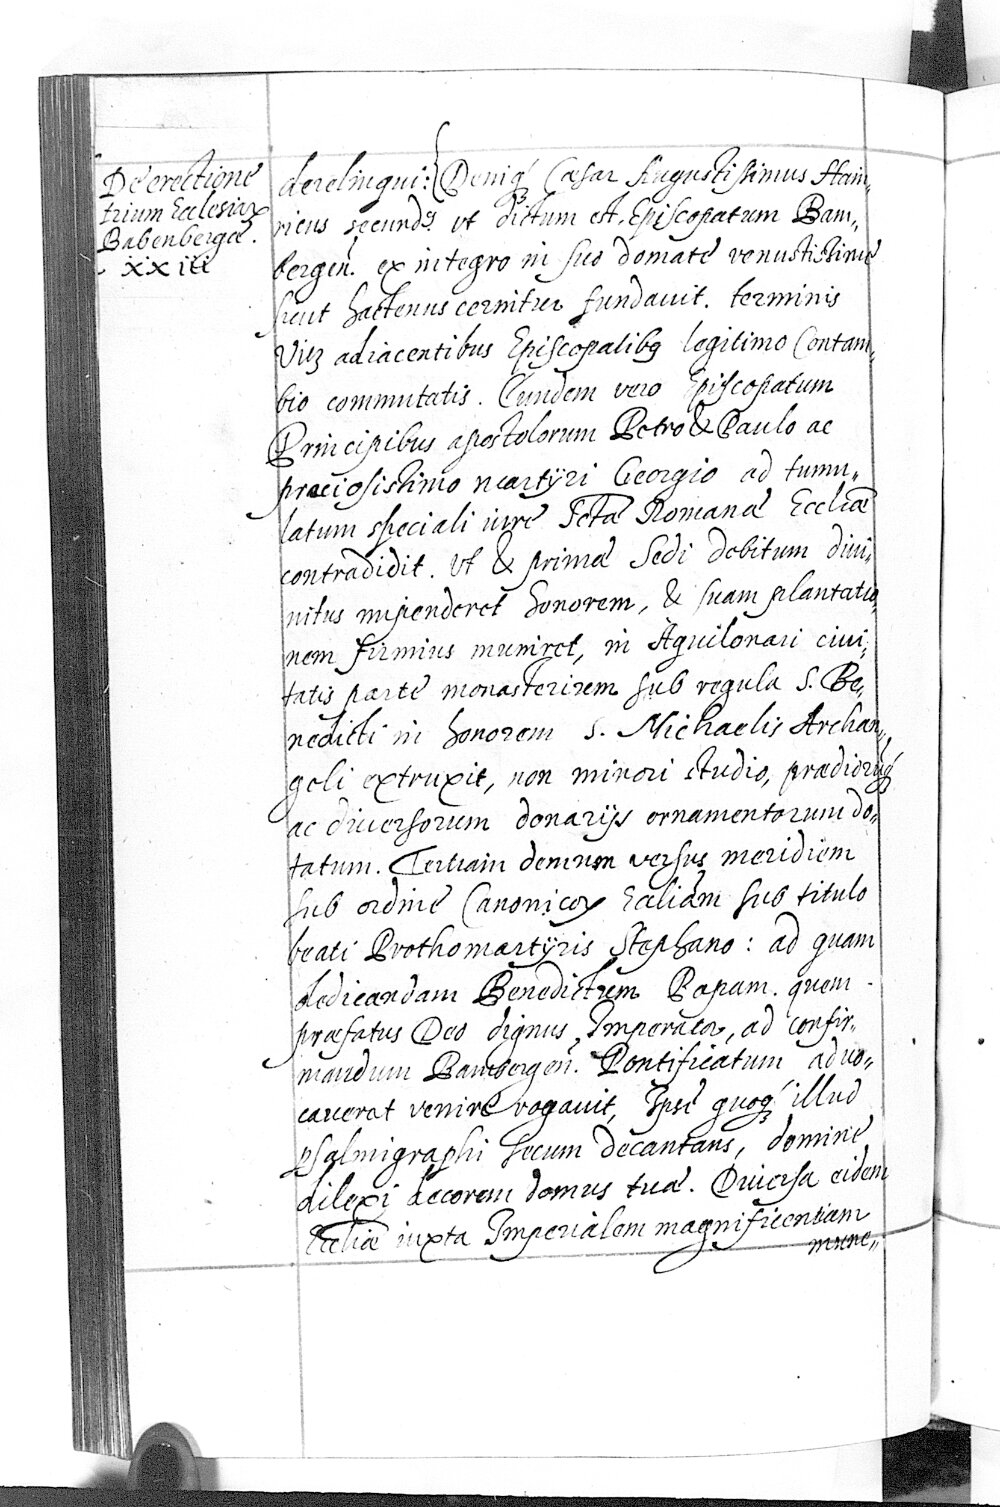 De erectione
trium Ecclesiarꝝ
Babenbergae.
XXIII
derelinqui: Deniqꝫ Caesar Augustissimus Hain„
ricus secundꝰ vt dictum est, Episcopatum Bam„
bergen̄. ex integro in suo domate venustissime
sicut hactenus cernitur fundauit. terminis
Viꝫ adiacentibus Episcopalibꝫ legitimo Contam„
bio commutatis. Eundem vero Episcopatum
Principibus apostolorum Petro & Paulo ac
praeciosissimo martÿri Georgio ad tumu„
latum speciali iure Sctae Romanae Eccliae
contradidit. vt & primae Sedi debitum diui„
nitus impenderet honorem, & suam plantatio„
nem firmius muniret, in Aquilonari ciui„
tatis parte monasterium sub regula S. Be„
nedicti in honorem S. Michaelis Archan„
geli extruxit, non minori studio, praediorūqꝫ
ac diuersorum donarijs ornamentorum do„
tatum. Tertiam demum versus meridiem
sub ordine Canonicoꝝ Eccliam sub titulo
beati Prothomartÿris Stephano: ad quam
dedicandam Benedictum Papam. quem
praefatus Deo dignus Imperator, ad confir„
mandum Bambergen̄. Pontificatum aduo„
cauerat venire rogauit, Ipse quoqꝫ illud
psalmigraphi secum decantans, domine
dilexi decorem domus tuae. Diuersa eidem
Eccliae iuxta Imperialem magnificentiam
mune„